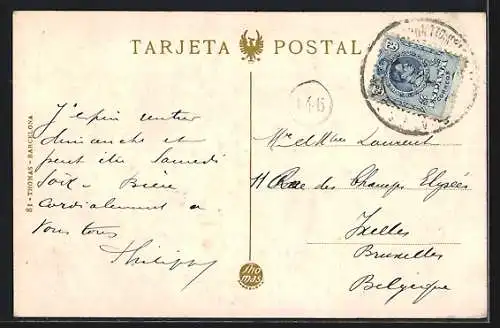 TARJETA POSTAL
81-THOMAS-BARCELONA
J'espère rentrer
dimanche et
peut être Samedi
soir - Bien
cordialement a
vous tous
Philippe
Mr et Mme Laurent
11 Rue des Champs Elysées
Ixelles
Bruxelles
Belgique
ESPAÑA
CORREOS
THO
MAS